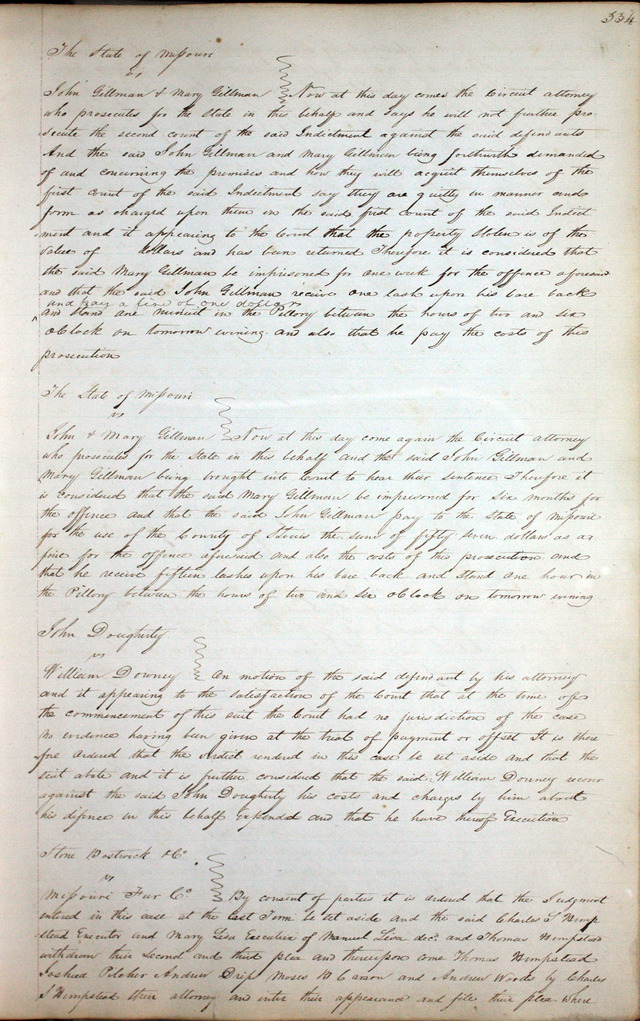 334
The State of Missouri
vs
John Gillman & Mary Gillman Now at this day comes the Circuit attorney
who prosecutes for the State in this behalf and says he will not further pro-
secute the second count of the said Indictment against the said defendants
And the said John Gillman and Mary Gillman being forthwith demanded
of and concerning the premises and how they will acquit themselves of the
first count of the said Indictment say they are guilty in manner and
form as charged upon them in the said first count of the said Indict
ment and it appearing to the Court that the property stolen is of the
value of dollars and has been returned Therefore it is considered that
the said Mary Gillman be imprisoned for one week for the offence aforesaid
and that the said John Gillman receive one lash upon his bare back
and pay a fine of one dollar
and stand one minute in the Pillory between the hours of two and six
oClock on tomorrow evening and also that he pay the costs of this
prosecution
The State of Missouri
vs
John & Mary Gillman Now at this day come again the Circuit attorney
who prosecutes for the State in this behalf and the said John Gillman and
Mary Gillman being brought into Court to hear their sentence Therefore it
is considered that the said Mary Gillman be imprisoned for Six months for
the offence and that the said John Gillman pay to the State of Missouri
for the use of the County of St Louis the sum of fifty seven dollars as a
fine for the offence aforesaid and also the costs of this prosecution and
that he receive fifteen lashes upon his bare back and stand one hour in
the Pillory between the hours of two and six oClock on tomorrow evening
John Dougherty
vs
William Downey On motion of the said defendant by his attorney
and it appearing to the satisfaction of the Court that at the time of
the commencement of this suit the Court had no jurisdiction of the case
no evidence having been given at the trial of payment or offset It is there
fore ordered that the verdict rendered in this case be set aside and that the
suit abate and it is further considered that the said William Downey recover
against the said John Dougherty his costs and charges by him about
his defence in this behalf Expended and that he have thereof Execution
Stone Bostwick & Co
vs
Missouri Fur Co By consent of parties it is ordered that the Judgment
entered in this case at the last Term be set aside and the said Charles S Hemp
stead Executor and Mary Lisa Executrix of Manuel Lisa decd. and Thomas Hempstead
withdraw their second and third plea and thereupon come Thomas Hempstead
Joshua Pilcher Andrew Drips Moses B Carson and Andrew Woods by Charles
S Hempstead their attorney and enter their appearance and file their plea where